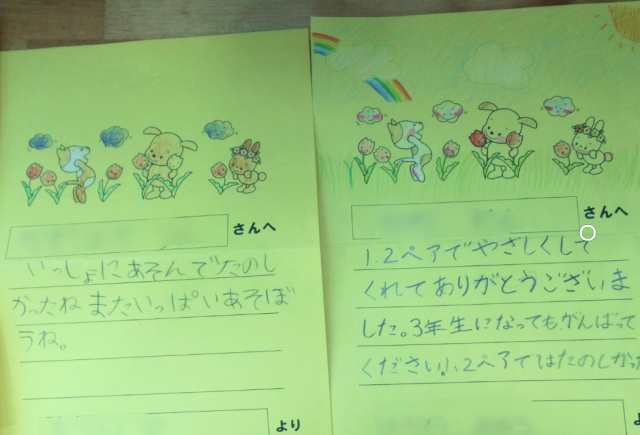 さんへ
いっしょにあそんでたのし
かったね またいっぱいあそぼ
うね。
より
さんへ
1.2ペアでやさしくして
くれてありがとうございま
した。3年生になってもがんばって
ください。1.2ペアではたのしかっ
よ